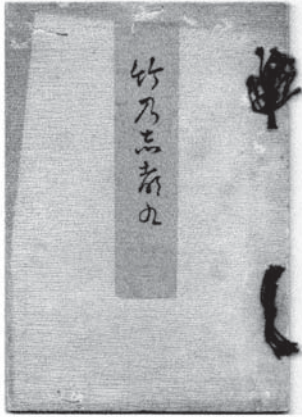 竹乃志都九